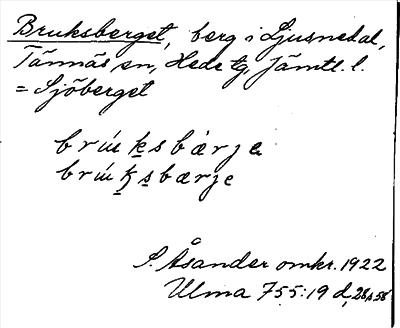 Bruksberget, berg i Ljusnedal,
Tännäs sn, Hede tg, Jämtl. l.
= Sjöberget
brúksbærje
brúksbærje
S. Åsander omkr. 1922
Ulma 755:19 d, 28, s. 58